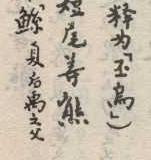 释为「玉烏」)
短尾善熊
「鲧 夏后禹之父